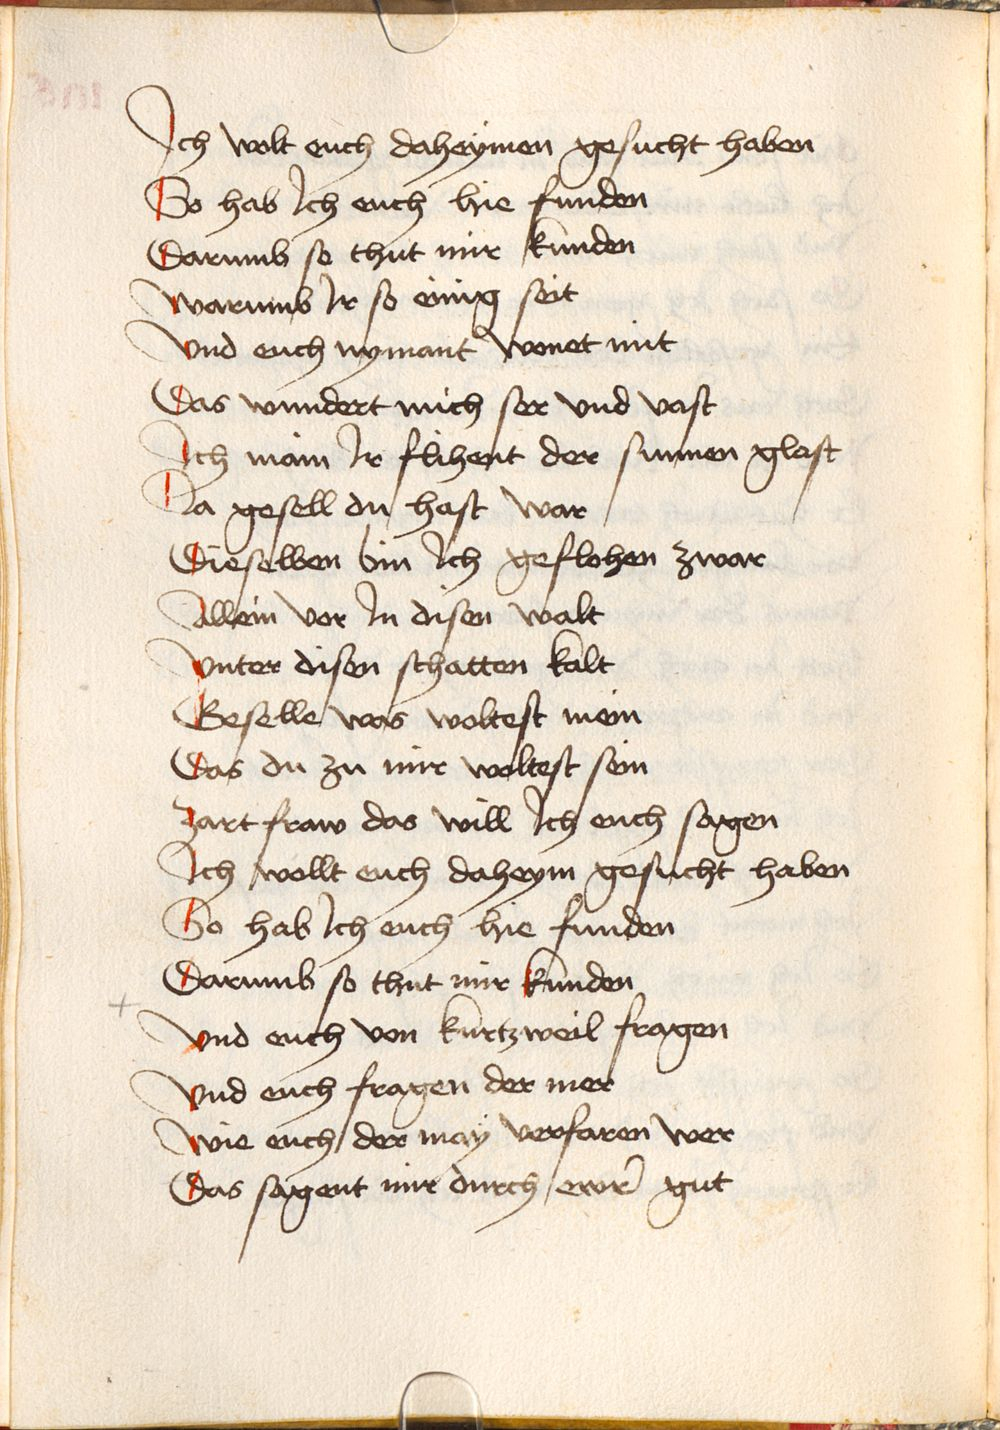 Ich wolt euch daheymen gesucht haben
So hab Ich euch hie funden
Darumb so thut mir kunden
Warumb Ir so einig seit
Vnd euch nymant wonet mit
Das wundert mich ser vnd vast
Ich main Ir flihent der sunnen glast
Ja gesell du hast war
Dieselben bin Ich geflohen zwar
Allein vor In disen walt
Vnter disen schatten kalt
Geselle was woltest mein
Das du zu mir woltest sein
Zart fraw das will Ich euch sagen
Ich wollt euch daheym gesucht haben
So hab Ich euch hie funden
Darumb so thut mir kunden
Vnd euch von kurtzweil fragen
Vnd euch fragen der mer
Wie euch der may verfaren wer
Das sagent mir durch ewr gut